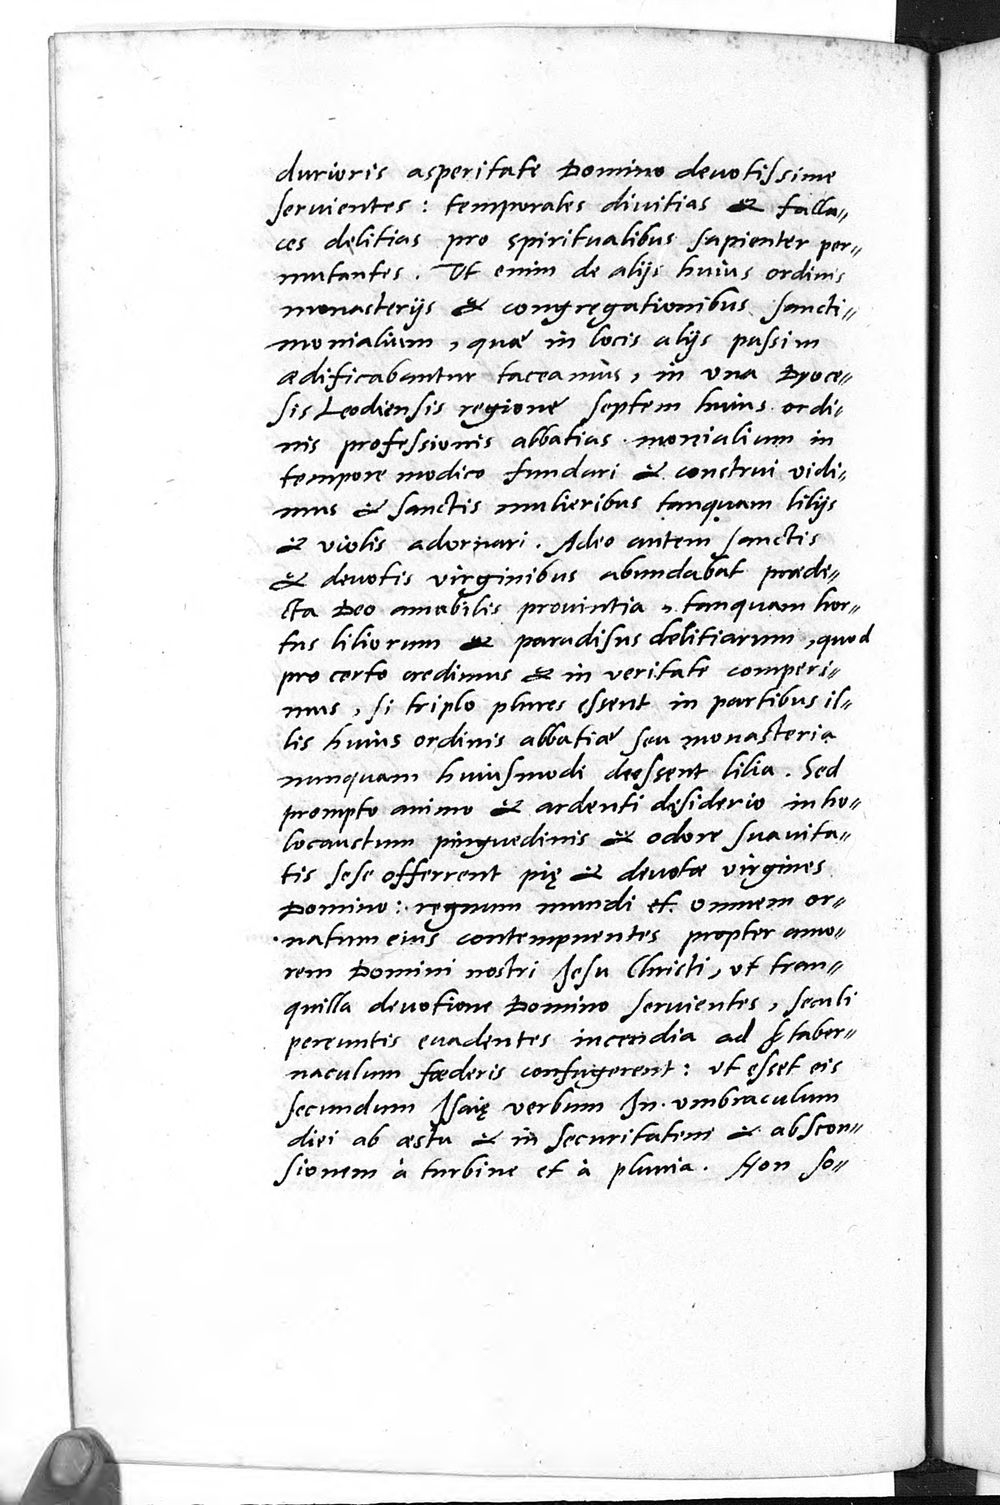 durioris asperitate Domino devotissime
servientes : temporales divitias & falla=
ces delitias pro spiritualibus sapienter per=
mutantes . Ut enim de alijs huius ordinis
monasterijs & congregationibus sancti=
monialium , quæ in locis alijs passim
ædificabantur taceamus , in una Dyoce=
sis Leodiensis regione septem huius ordi=
nis professionis abbatias monialium in
tempore modico fundari & construi vidi=
mus & sanctis mulieribus tanquam lilijs
& violis adornari . Adeo autem sanctis
& devotis virginibus abundabat prædi=
cta Deo amabilis provintia , tanquam hor=
tus liliorum & paradisus delitiarum , quod
pro certo credimus & in veritate comperi=
mus , si triplo plures essent in partibus il=
lis huius ordinis abbatiæ seu monasteria
nunquam huiusmodi deessent lilia . Sed
prompto animo & ardenti desiderio in ho=
locaustum pinguedinis & odore suavita=
tis sese offerrent pię & devotæ virgines
Domino : regnum mundi et omnem or=
natum eius contempnentes propter amo=
rem Domini nostri Jesu Christi , ut tran=
quilla devotione Domino servientes , seculi
pereuntis evadentes incendia ad taber=
naculum fœderis confugerent : ut esset eis
secundum Isaię verbum In umbraculum
diei ab æstu & in securitatem & abscon=
sionem à turbine et à pluvia . Non so=